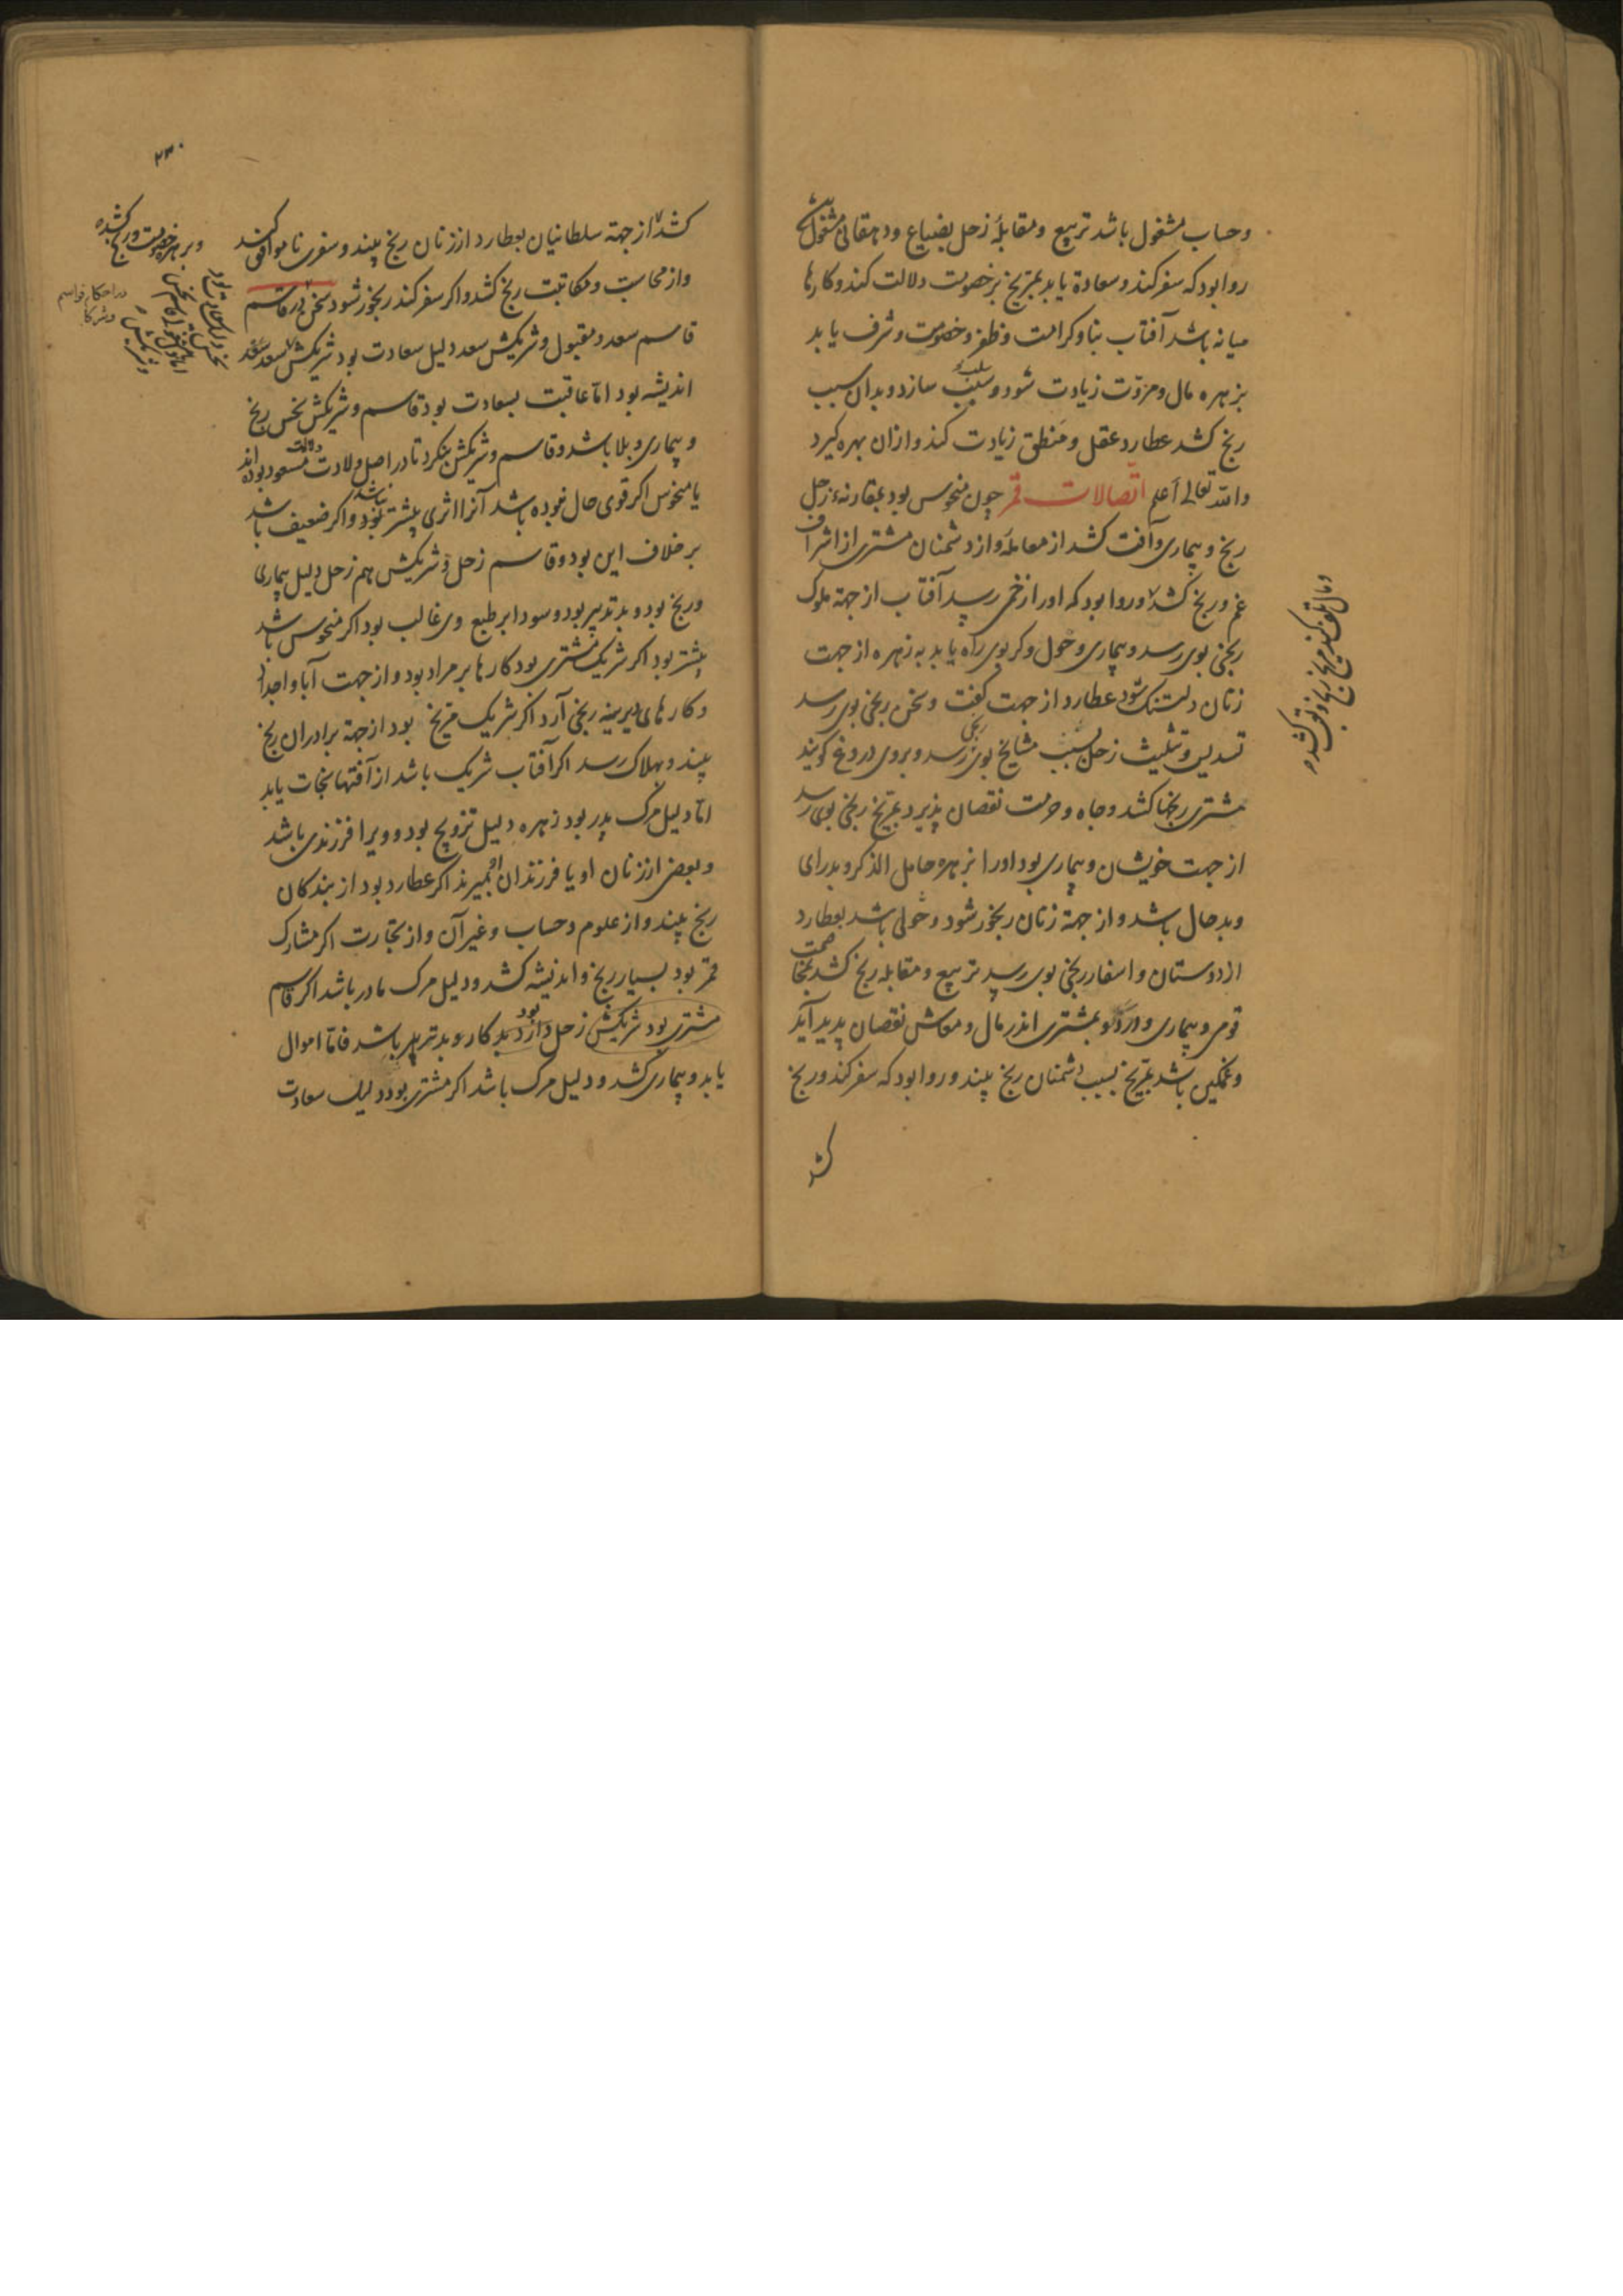 وحساب مشغول باشد تربیع ومقابلهٔ زحل بضیاع ودهقانی مشغول
روا بود که سفر کند وسعادة یابد بمریخ بر خصومت دلالت کند وکارها
میانه باشد آفتاب بنا وکرامت وظفر وخصومت وشرف یابد
بزهره مال ومروّت زیادت شود وسبب سازد وبدان سبب
رنج کشد عطارد عقل ومنطق زیادت کند وازان بهره کیرد
والله تعالی أعلم اتصالات قمر چون منحوس بود بمقارنهٔ زحل
رنج وبیماری وآفت کشد از معامله واز دشمنان مشتری از اشراف
غم ورنج کشد وروا بود که اورا زخمی رسد آفتاب از جهة ملوک
رنجی بوی رسد وبیماری وخول وکر بوی راه یابد به زهره از جهت
زنان دلتنک شود عطارد از جهت کفت وسخن رنجی بوی رسد
تسدیس وتثلیث زحل بسبب مشایخ بوی رنجی رسد وبروی دروغ کویند
مشتری رنجها کشد وجاه وحرمت نقصان پذیرد بمریخ رنجی بوی رسد
از جهت خویشان وبیماری بود اورا بزهره حامل الذکر وبدرای
وبد حال باشد واز جهة زنان رنجور شود وخولی باشد بعطارد
از دوستان واسفار رنجی بوی رسد تربیع ومقابله رنج کشد بمخاصمت
قومی وبیماری وبمشتری اندر مال ومعاش نقصان پدید آید
وغمکین باشد بمریخ بسبب دشمنان رنج بیند وروا بود که سفر کند ورنج
کشد
ومال تلف کند مریخ رنجها
۲۳۰
کشد از جهة سلطانیان بعطارد از زنان رنج بیند وسفری ناموافق کند
واز محاسبت ومکاتبت رنج کشد واکر سفر کند رنجور شود سخن در قاسم
قاسم سعد ومقبول وشریکش سعد دلیل سعادت بود شریکش سعد
اندیشه بود امّا عاقبت بسعادت بود قاسم وشریکش نحس رنج
وبیماری وبلا باشد وقاسم وشریکش بنکرد تا در اصل ولادت مسعود بوده اند
یا منحوس اکر قوی حال نبوده باشد آنرا اثری بیشتر بود واکر ضعیف باشد
بر خلاف این بود وقاسم زحل وشریکش هم زحل دلیل بیماری
ورنج بود وبد تدبیر بود وسودا بر طبع وی غالب بود اکر منحوس باشد
بیشتر بود اکر شریک مشتری بود کارها بر مراد بود واز جهت آبا واجداد
وکارهای دیرینه رنجی آرد اکر شریک مریخ بود از جهة برادران رنج
بیند وبهلاک رسد اکر آفتاب شریک باشد از آفتها نجات یابد
امّا دلیل مرک پدر بود زهره دلیل تزویج بود وویرا فرزندی باشد
وبعضی از زنان او یا فرزندان او بمیرند اکر عطارد بود از بندکان
رنج بیند واز علوم وحساب وغیر آن واز تجارت اکر مشارک
قمر بود بسیار رنج واندیشه کشد ودلیل مرک مادر باشد اکر قاسم
مشتری بود شریکش زحل بد کار وبد تدبیر باشد فامّا اموال
یابد وبیماری کشد ودلیل مرک باشد اکر مشتری بود دلیل سعادت
وبزهره خصومت ورنج کشد
در احکام قواسم
وشرکا